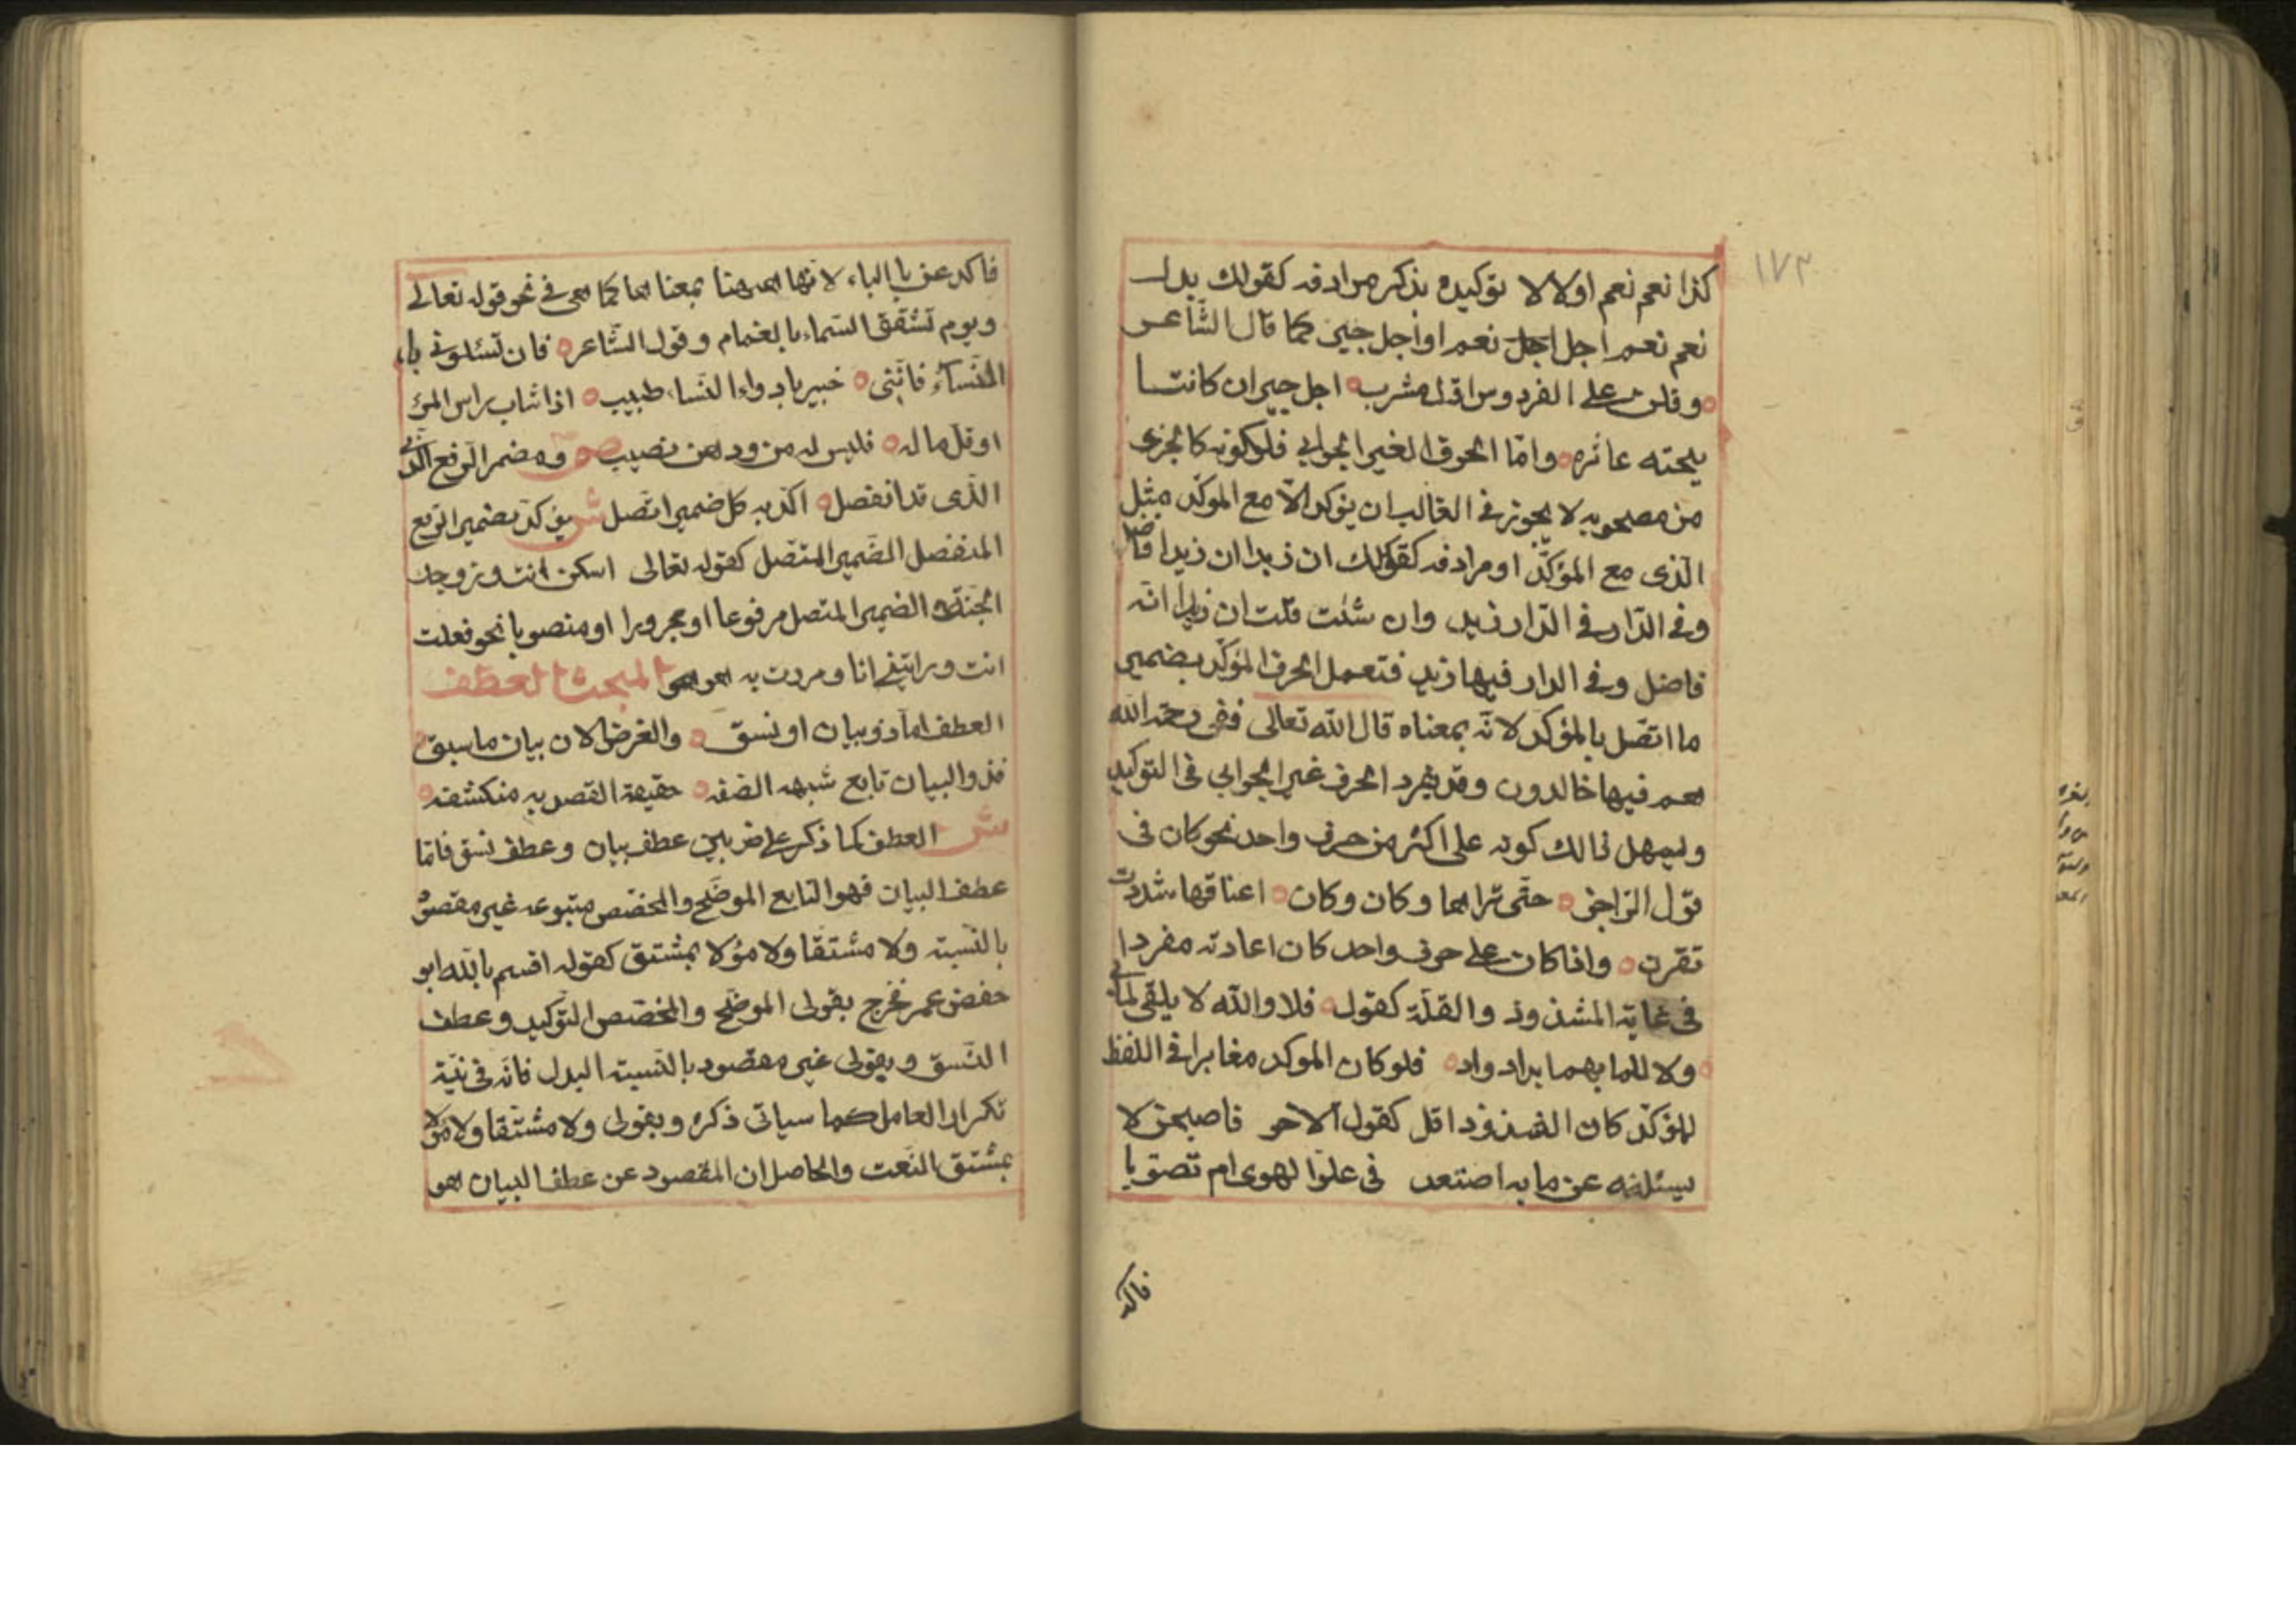 ١٧٣
كذا نعم نعم اولا لا توكيده بذكر مرادفه كقولك بدل
نعم نعم اجل اجل نعم او اجل جير كما قال الشاعر
وقلن على الفردوس اوّل مشرب اجل جير ان كانت
وامّا الحروف الغير الجوابى فلكونه كالجزء
من مصحوبه لا يجوز فى الغالب ان يؤكد الّا مع المؤكّد مثل
الّذى مع المؤكّد او مرادفه كقولك ان زيدا ان زيدا فاضل
وفى الدّار فى الدّار زيد وان شئت قلت ان زيدا انّه
فاضل وفى الدار فيها زيد فتعمل الحرف المؤكّد بضمير
ما اتصل بالمؤكد لانّه بمعناه قال الله تعالى ففى رحمة الله
هم فيها خالدون وقد يفرد الحرف غير الجوابى فى التوكيد
ويسهل ذالك كونه على اكثر من حرف واحد نحو كان فى
قول الرّاجز حتّى تراها وكان وكان اعناقها شددت
بقرن واذا كان على حرف واحد كان اعادته مفردا
فى غاية الشذوذ والقلّة كقوله فلا والله لا يلفى لما بى
ولا للما بهما ابدا دواء فلو كان الموكد مغايرا فى اللفظ
للمؤكّد كان الشذوذ اقل كقول الآخر فاصبحن لا
يسئلنه عن ما به اصعد فى علوّ الهوى ام تصوّبا
فاكد
فاكد عن بالباء لانها هنا بمعناها كما هى فى نحو قوله تعالى
ويوم تشقق السماء بالغمام وقول الشّاعر فان تسئلونى با
النّساء فانّنى خبير بادواء النّساء طبيب اذا شاب راس المرء
او قلّ ماله فليس له من ودهن نصيب ص ومضمر الرفع
الّذى قد انفصل اكّد به كل ضمير اتّصل ش يؤكّد بضمير الرفع
المنفصل الضمير المتصل كقوله تعالى اسكن انت وزوجك
الجنّة الضمير المتصل مرفوعا او مجرورا او منصوبا نحو فعلت
انت ورايتنى انا ومررت به هو المبحث العطف
العطف امّا ذو بيان او نسق والغرض الان بيان ما سبق
فذو البيان تابع شبه الصّفه حقيقة القصد به منكشفه
ش العطف كما ذكر على ضربين عطف بيان وعطف نسق فامّا
عطف البيان فهو التابع الموضح والمخصّص متبوعه غير مقصود
بالنّسبة ولا مشتقا ولا مؤلا بمشتق كقوله اقسم بالله ابو
حفص عمر فخرج بقولى الموضح والمخصّص التوكيد وعطف
النّسق وبقولى غير مقصود بالنّسبة البدل فانّه فى نيّة
تكرار العامل كما سياتى ذكره وبقولى ولا مشتقا ولا مؤلا
بمشتق النّعت والحاصل ان المقصود عن عطف البيان هو